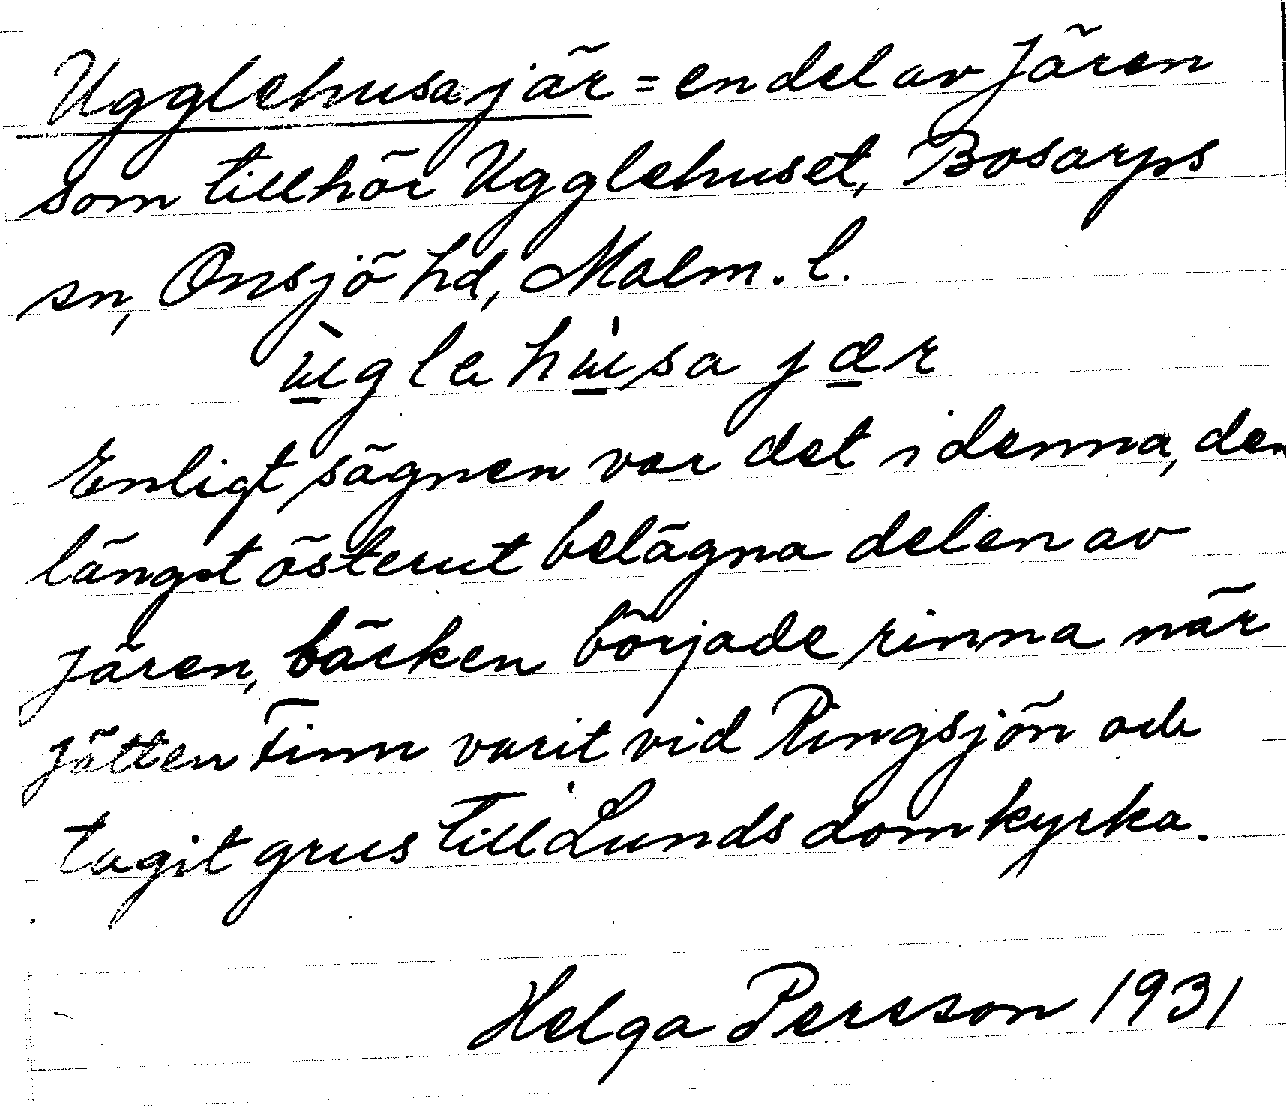 Ugglehusa jär = en del av Jären
som tillhör Ugglehuset, Bosarps
sn, Onsjö hd, Malm. l.
ùglahu̍sa jær
Enligt sägnen var det i denna, den
längst österut belägna delen av
Jären, bäcken började rinna när
Jätten Finn varit vid Ringsjön och
tagit grus till Lunds domkyrka.
Helga Persson 1931